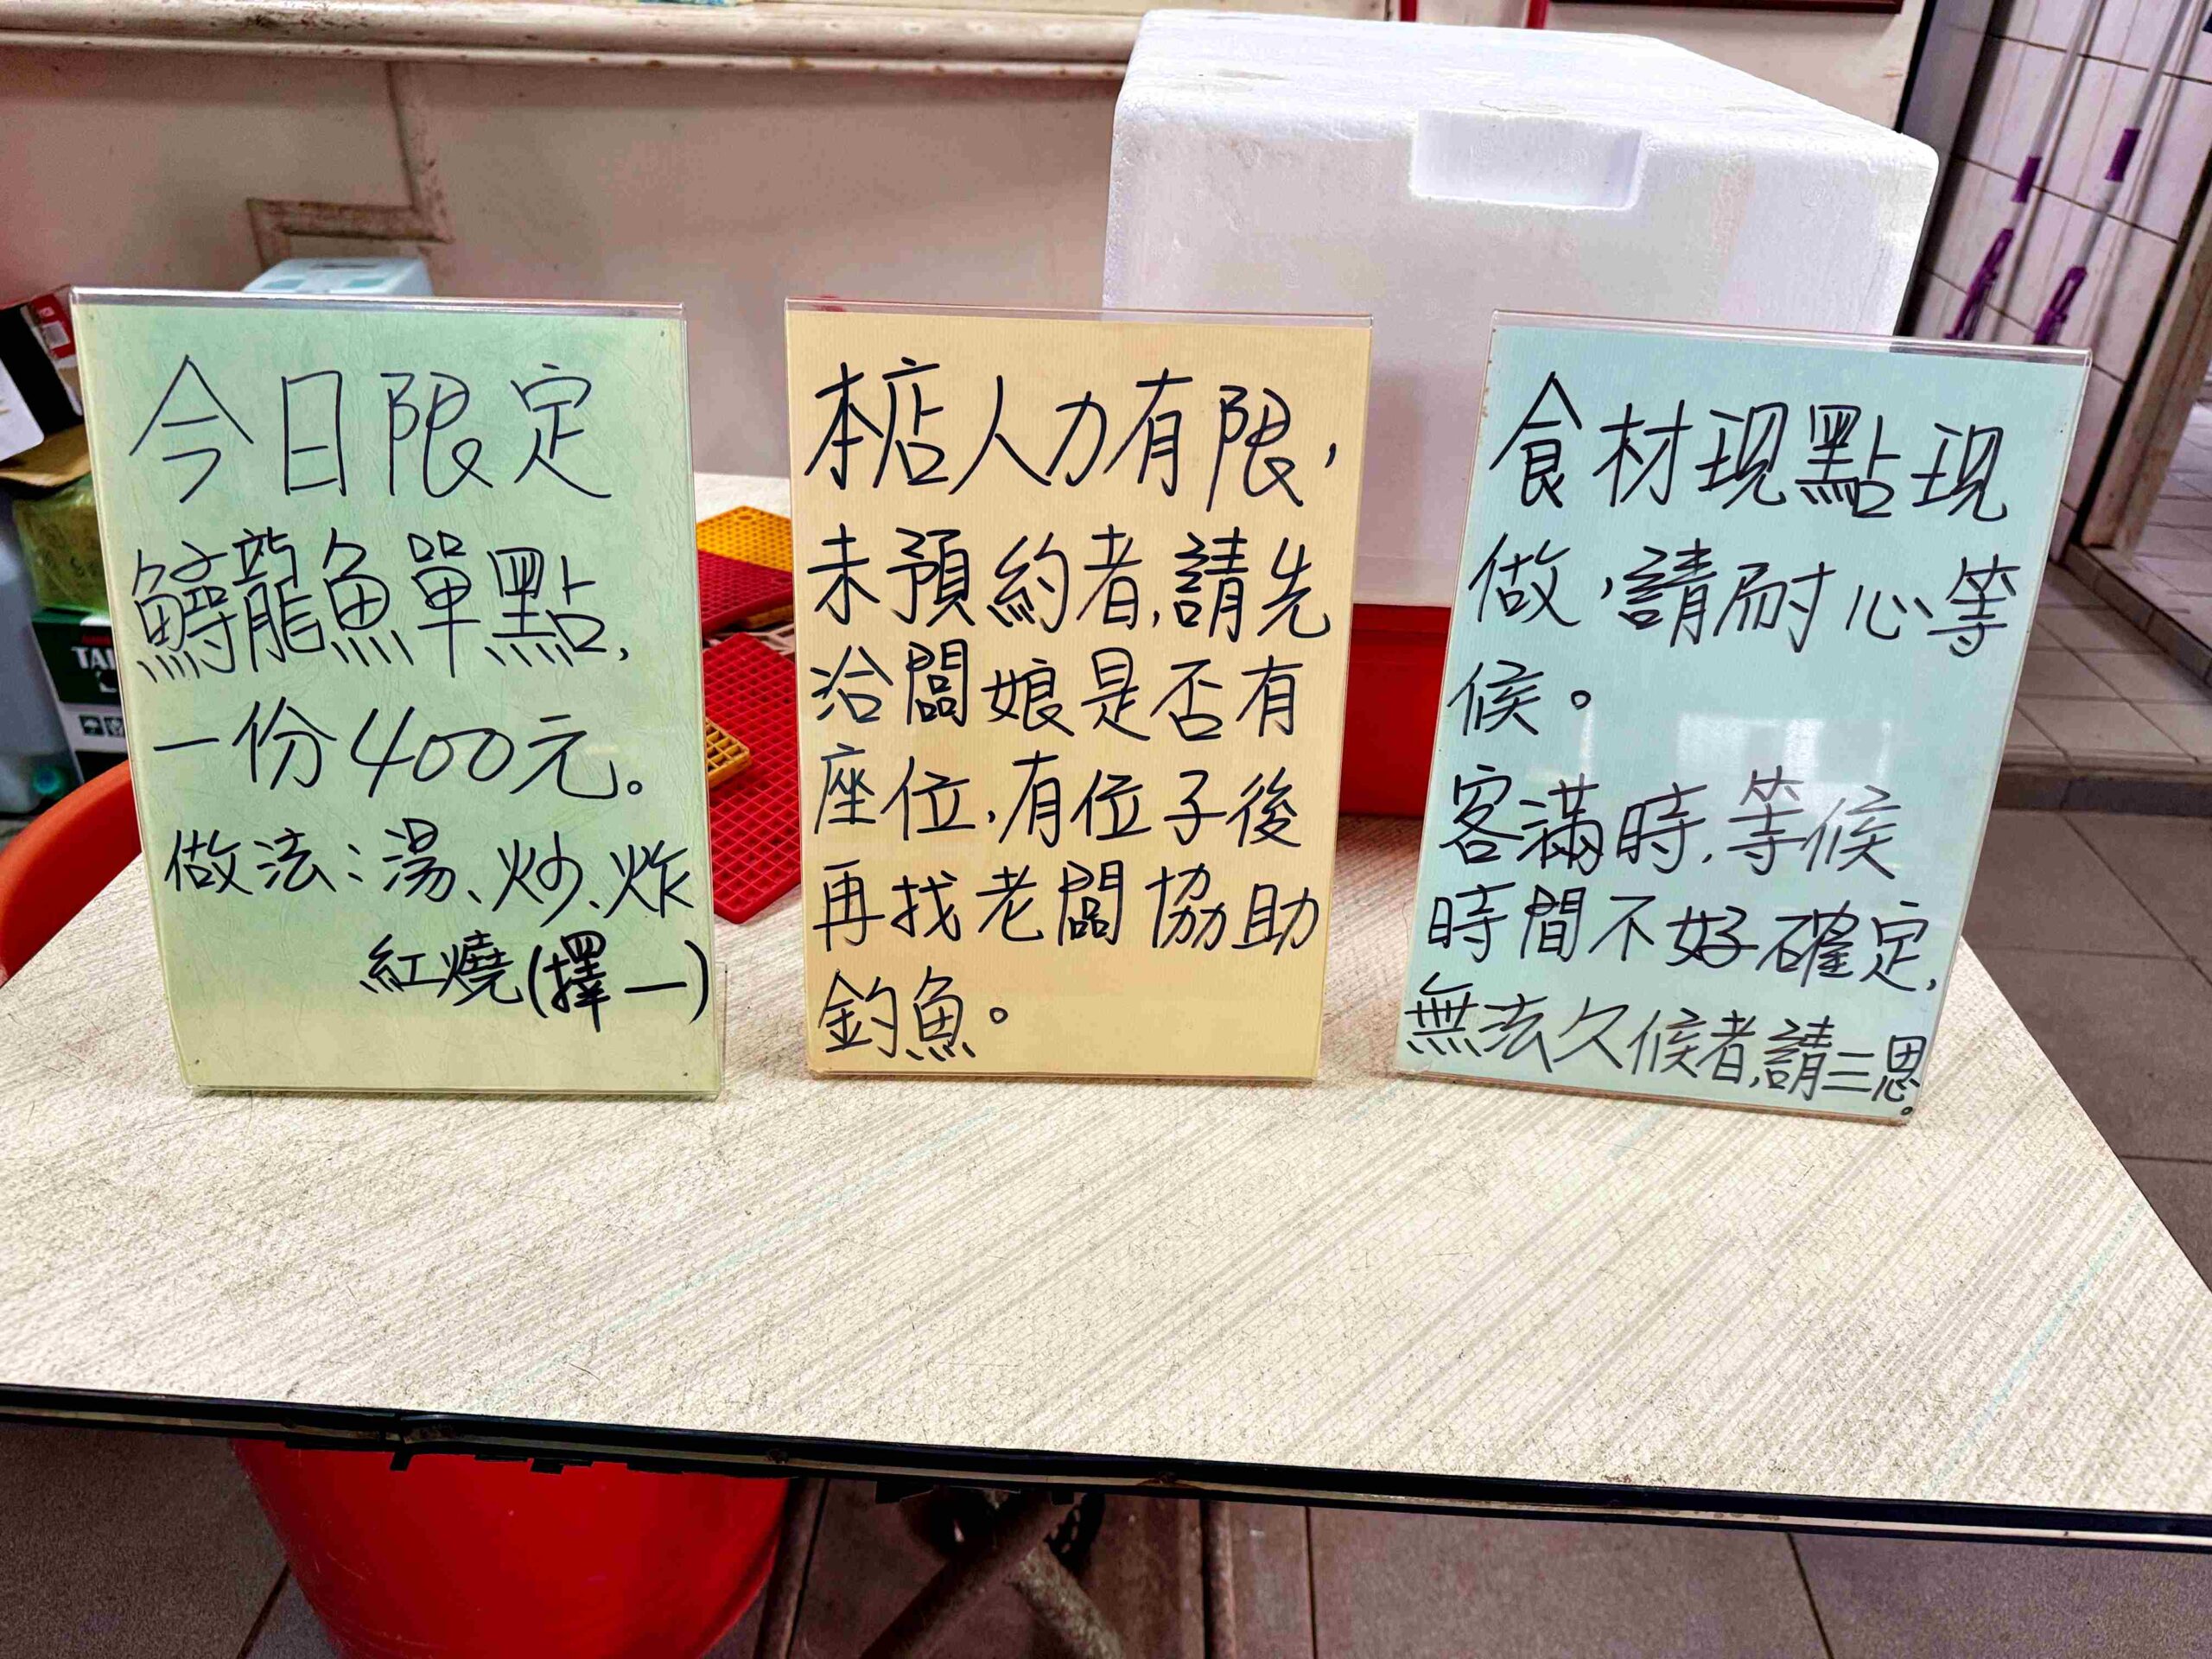 今日限定
鱘龍魚單點,
一份400元。
做法:湯、炒、炸
紅燒(擇一)
本店人力有限,
未預約者,請先
洽闆娘是否有
座位,有位子後
再找老闆協助
釣魚。
食材現點現
做,請耐心等
候。
客滿時,等候
時間不好確定,
無法久候者,請三思。